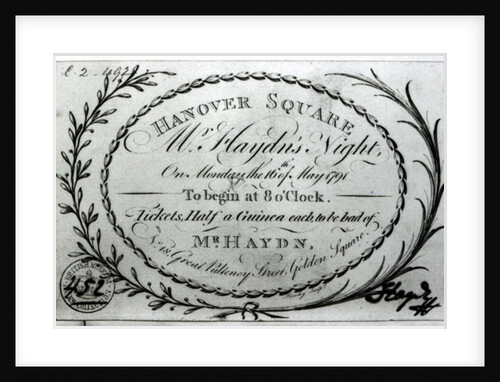 C.2.492
HANOVER SQUARE
Mr. Haydn's Night,
On Monday, the 16th of May 1791
To begin at 8 o'Clock.
Tickets, Half a Guinea each, to be had of
MR. HAYDN,
No. 18 Great Pulteney Street, Golden Square.
452
Haydn